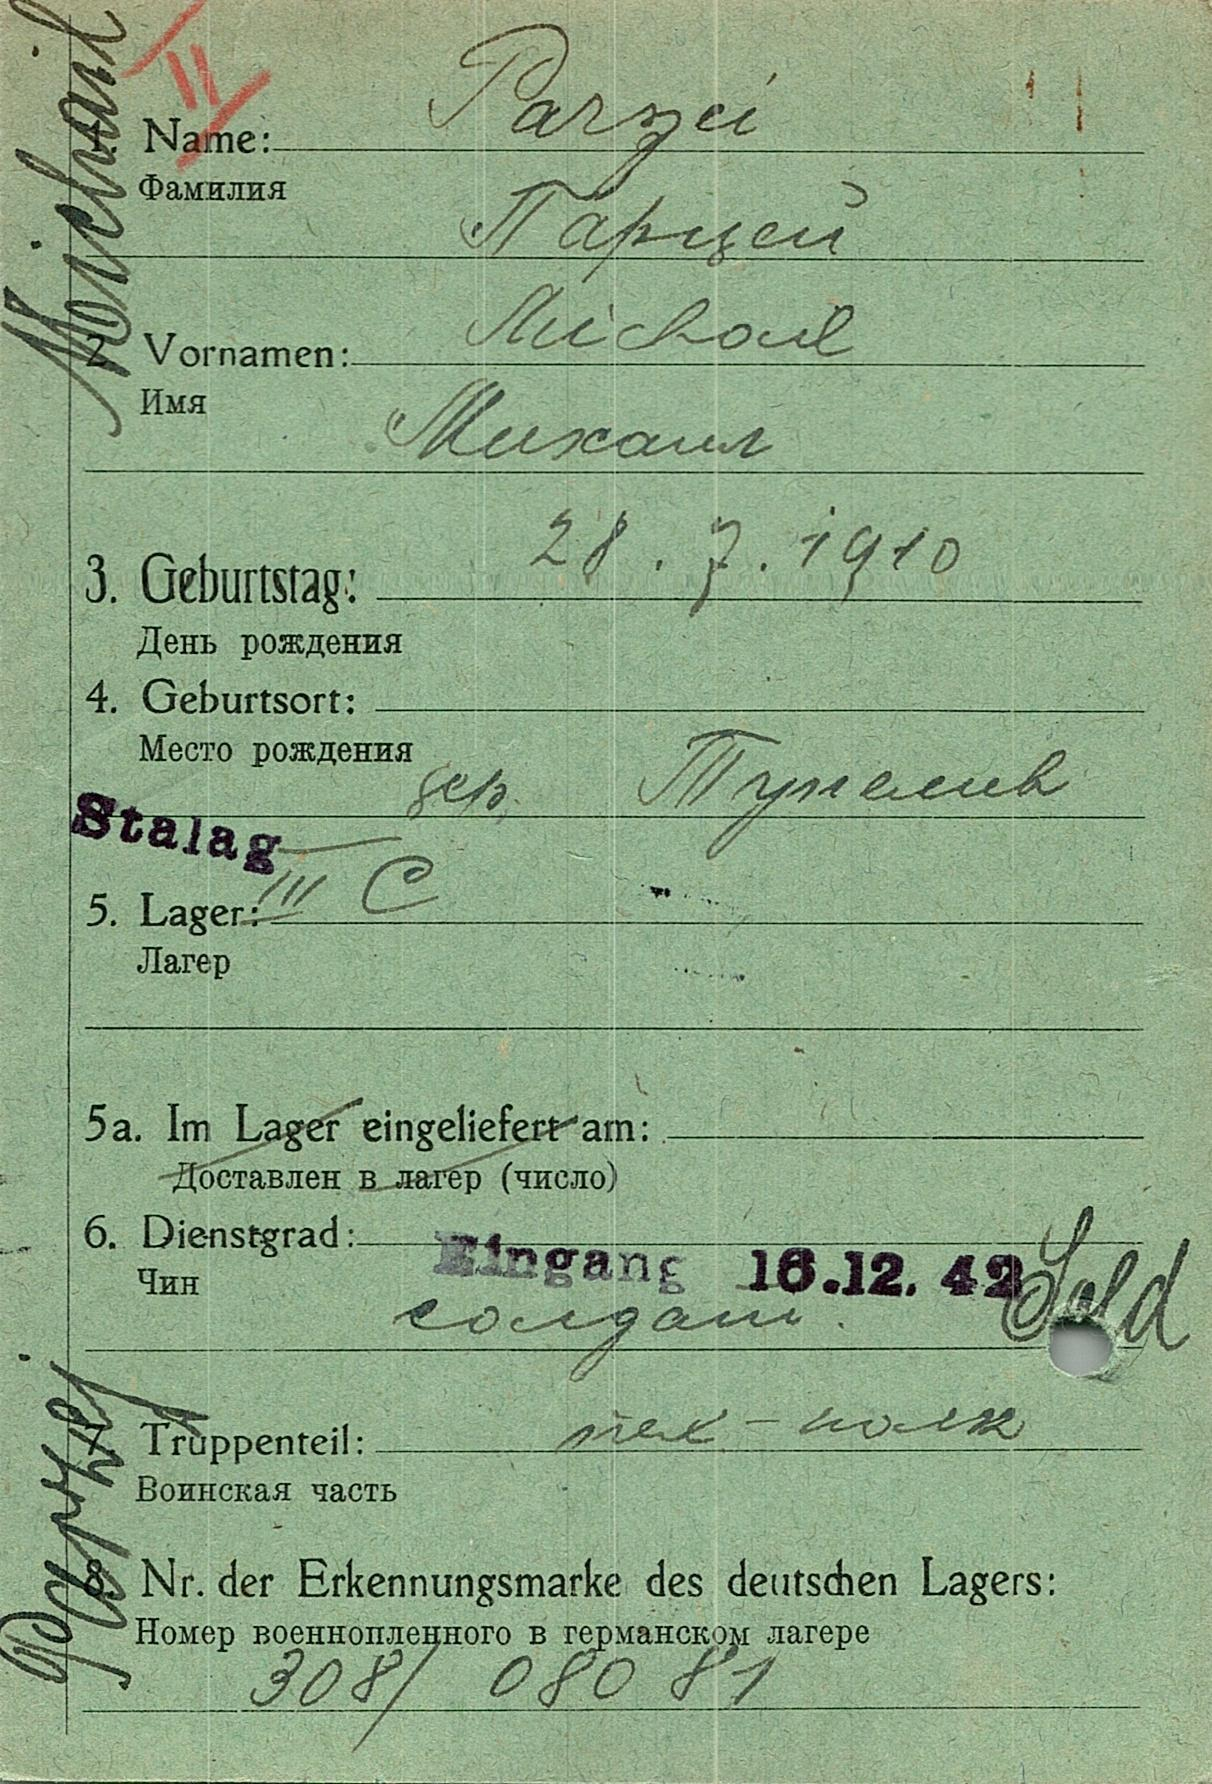 II
1. Name: Parzei
Фамилия
Парцей
2. Vornamen: Michail
Имя
Михаил
3. Geburtstag: 28.7.1910
День рождения
4. Geburtsort:
Место рождения
дер.
Stalag
5. Lager: III C
Лагер
5a. Im Lager eingeliefert am:
Доставлен в лагер (число)
6. Dienstgrad:
Eingang 16.12.42
Чин
солдат. Sold
7. Truppenteil: пех-полк
Воинская часть
8. Nr. der Erkennungsmarke des deutschen Lagers:
Номер военнопленного в германском лагере
308/ 08081
Parzej Michail